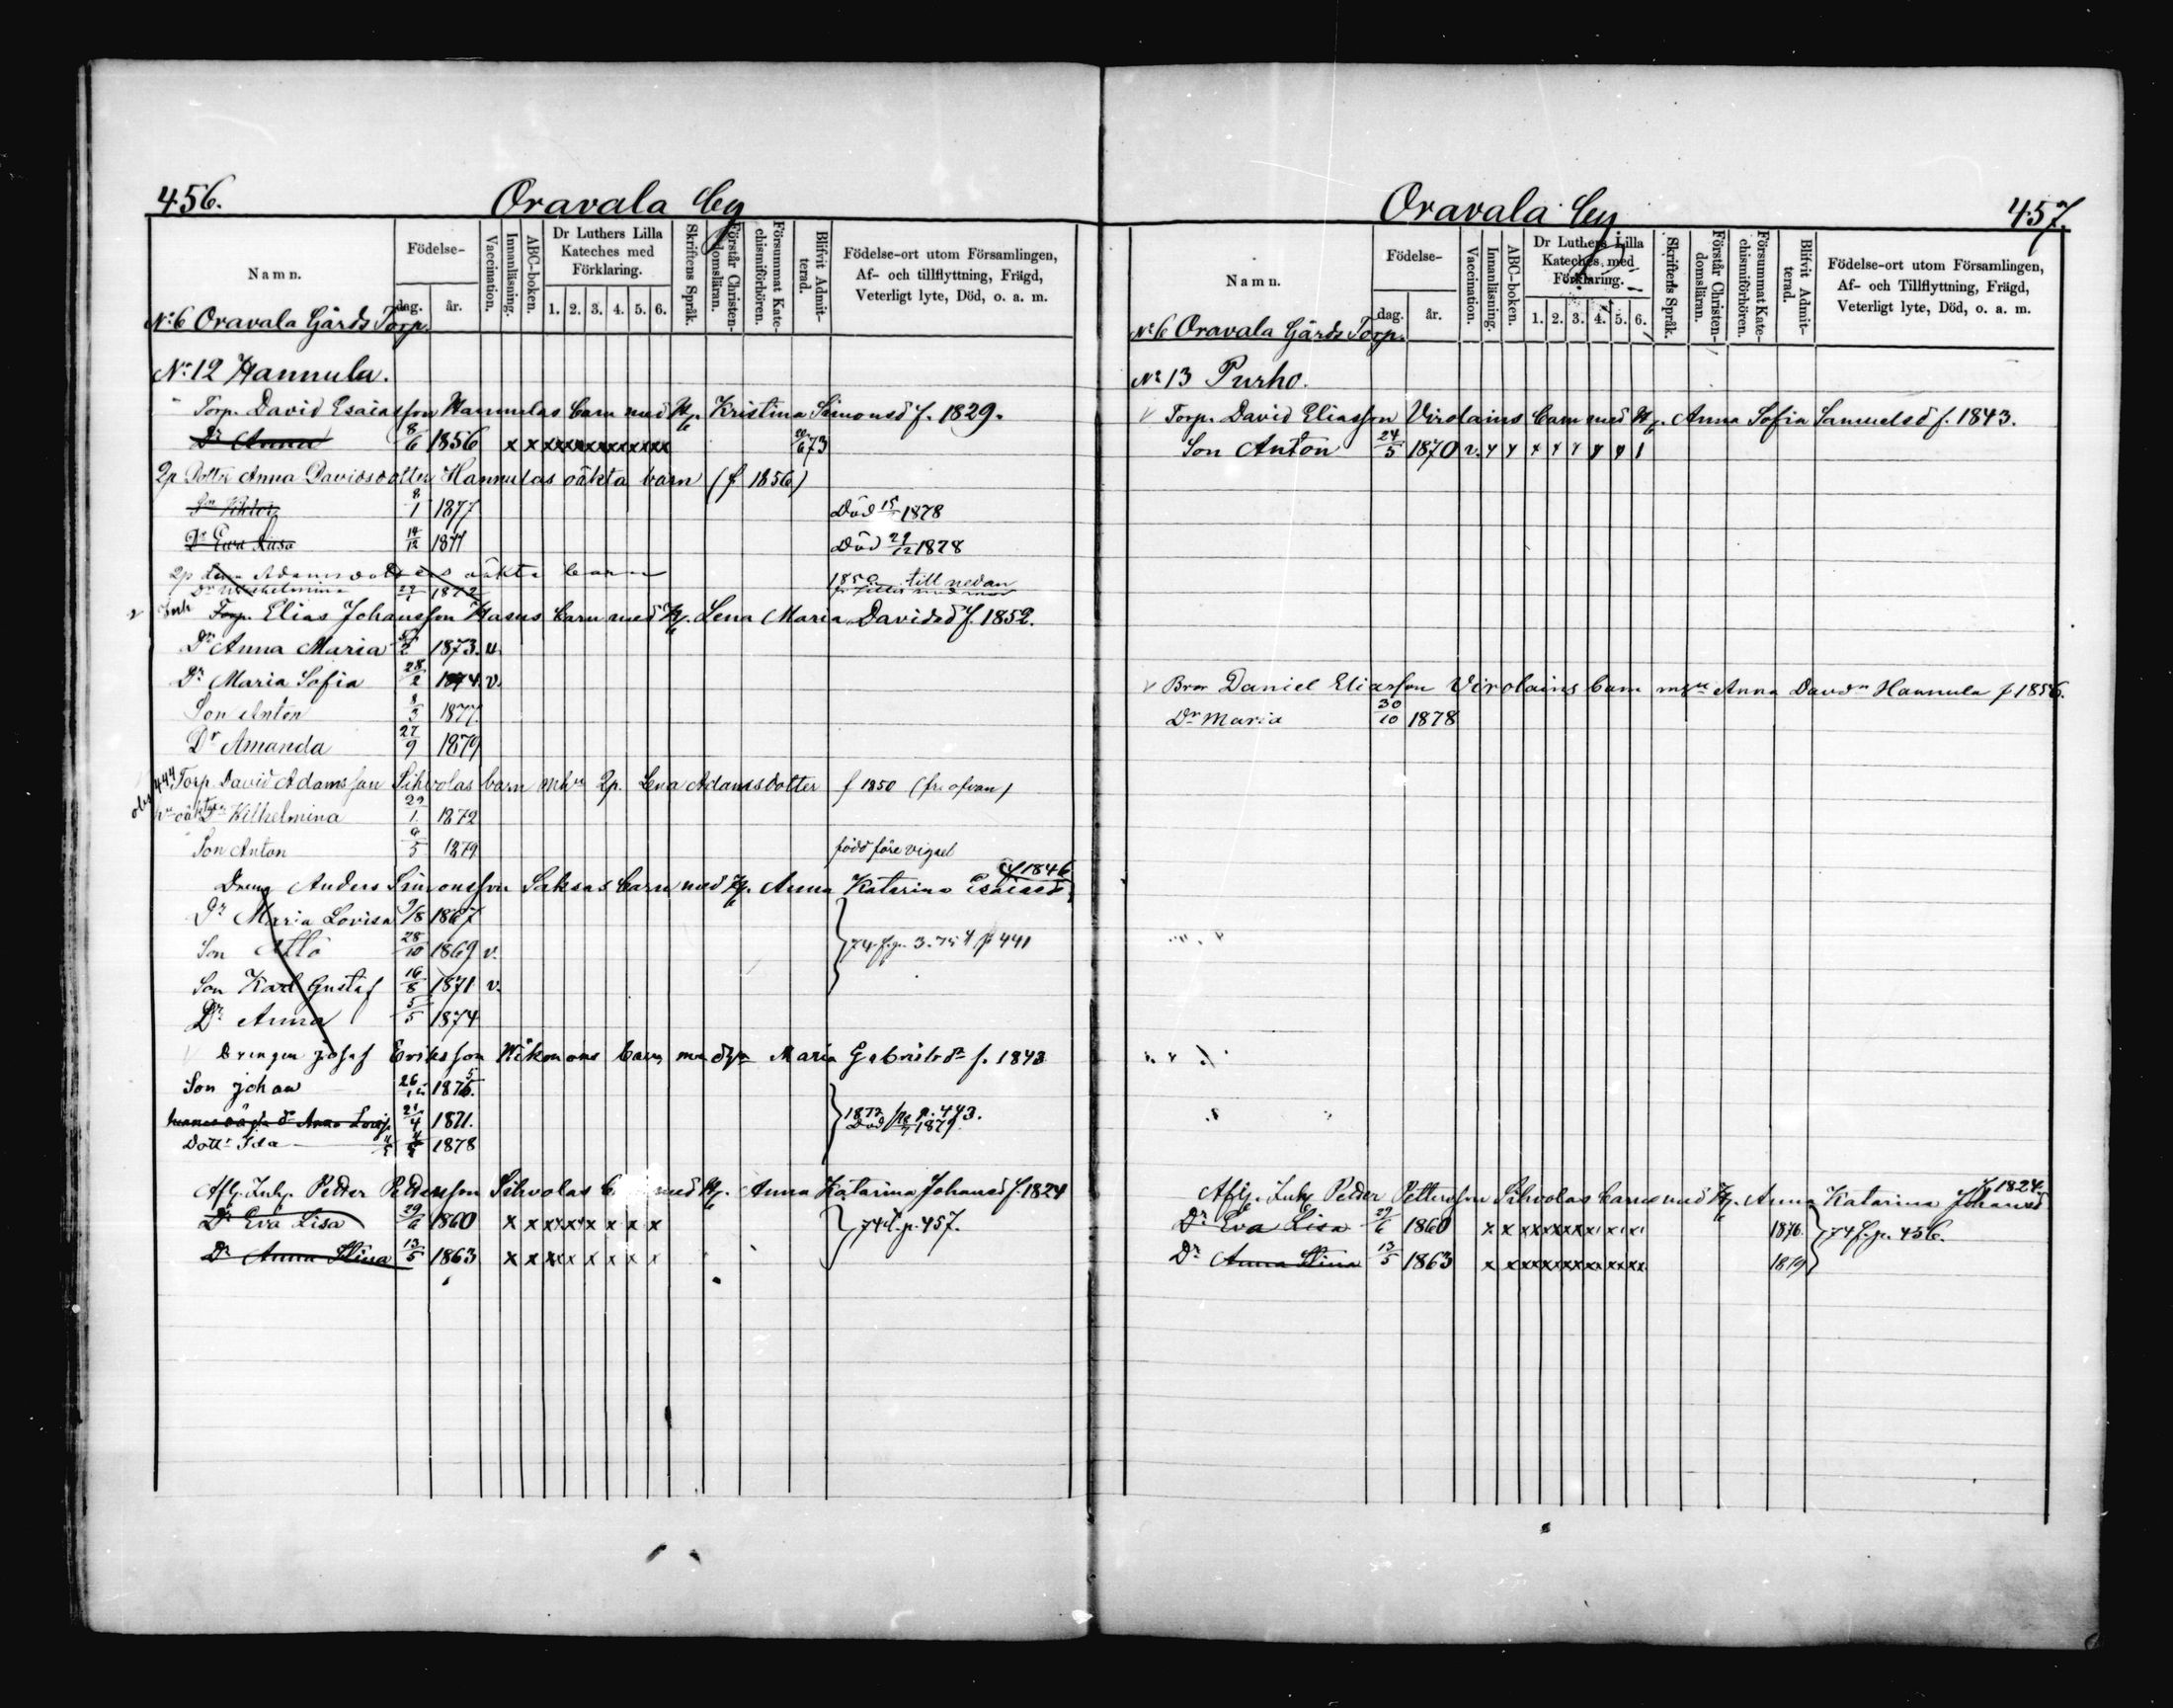 456.
Oravala by
Namn.
Födelse-
dag.
år.
Vaccination.
Innanläsning.
ABC-boken.
Dr Luthers Lilla Kateches med Förklaring.
1. 2. 3. 4. 5. 6.
Skriftens Språk.
Förstår Christendomsläran.
Försummat Katechismiförhören.
Blifvit Admitterad.
Födelse-ort utom Församlingen,
Af- och tillflyttning, Frägd,
Veterligt lyte, Död, o. a. m.
No 6 Oravala Gårds Torp.
No 12 Hannula.
Torp. David Esaiasson Hannulas barn med H. Kristina Simonsd f. 1829.
Dr Anna 8/6 1856 x x x x x x x x x x x 73
2p Dottr Anna Davidsdotter Hannulas oäkta barn (f 1856)
Sn Viktor 8/1 1877 Död 15 1878
Dr Eva Lisa 14/12 1877 Död 29/12 1878
2p Adamsdotters oäkta barn 1850 till nedan
Dr Wilhelmina 29/1 1872
Inh Torp. Elias Johansson Hasus barn med H. Lena Maria Davidsd f. 1852.
Dr Anna Maria 2 1873. v.
Dr Maria Sofia 28/2 1874. v.
Son Anton 8/3 1877.
Dr Amanda 27/9 1879
444 Torp David Adamsson Sihvolas barn mhu 2p. Lena Adamsdotter f 1850 (fr. ofvan)
hu oäkta Dr Wilhelmina 29/1. 1872
Son Anton 9/5 1879 född före vigsel
Dreng Anders Simonsson Saksas barn med H. Anna Katarina Esaiasd f 1846
Dr Maria Lovisa 9/8 1867
Son Otto 28/10 1869 v. 74. f. p. 441
Son Karl Gustaf 16/8 1871 v.
Dr Anna 5/5 1874
Drengen Josef Eriksson Hikonens barn med hu Maria Gabrielsdr f. 1843
Son Johan 26 1875.
hennes oägta dr Anna Lovisa 21/4 1871. 1872 p. 443. Död 1879
Dottr Ida 4/5 1878
Afl. Inh. Petter Pettersson Sihvolas med H. Anna Katarina Johansd f. 1824
Dr Eva Lisa 29/6 1860 x x x x x x x x 74 f. p. 457.
Dr Anna Stina 13/5 1863 x x x x x x x x
Oravala by
457.
Namn.
Födelse-
dag.
år.
Vaccination.
Innanläsning.
ABC-boken.
Dr Luthers Lilla Kateches med Förklaring.
1. 2. 3. 4. 5. 6.
Skriftens Språk.
Förstår Christendomsläran.
Försummat Katechismiförhören.
Blifvit Admitterad.
Födelse-ort utom Församlingen,
Af- och Tillflyttning, Frägd,
Veterligt lyte, Död, o. a. m.
No 6 Oravala Gårds Torp.
No 13 Purho.
Torp. David Eliasson Virolains barn med H. Anna Sofia Samuelsd f. 1843.
Son Anton 24/5 1870 v.
Bror Daniel Eliasson Virolains barn mhu Anna Davdr Hannula f 1856.
Dr Maria 30/10 1878
Afl. Inh Petter Pettersson Sihvolas barn med H. Anna Katarina Johansd f 1824.
Dr Eva Lisa 29/6 1860 x x x x x x x x x x 1876. 74 f. p. 456.
Dr Anna Stina 13/5 1863 x x x x x x x x x x 1879